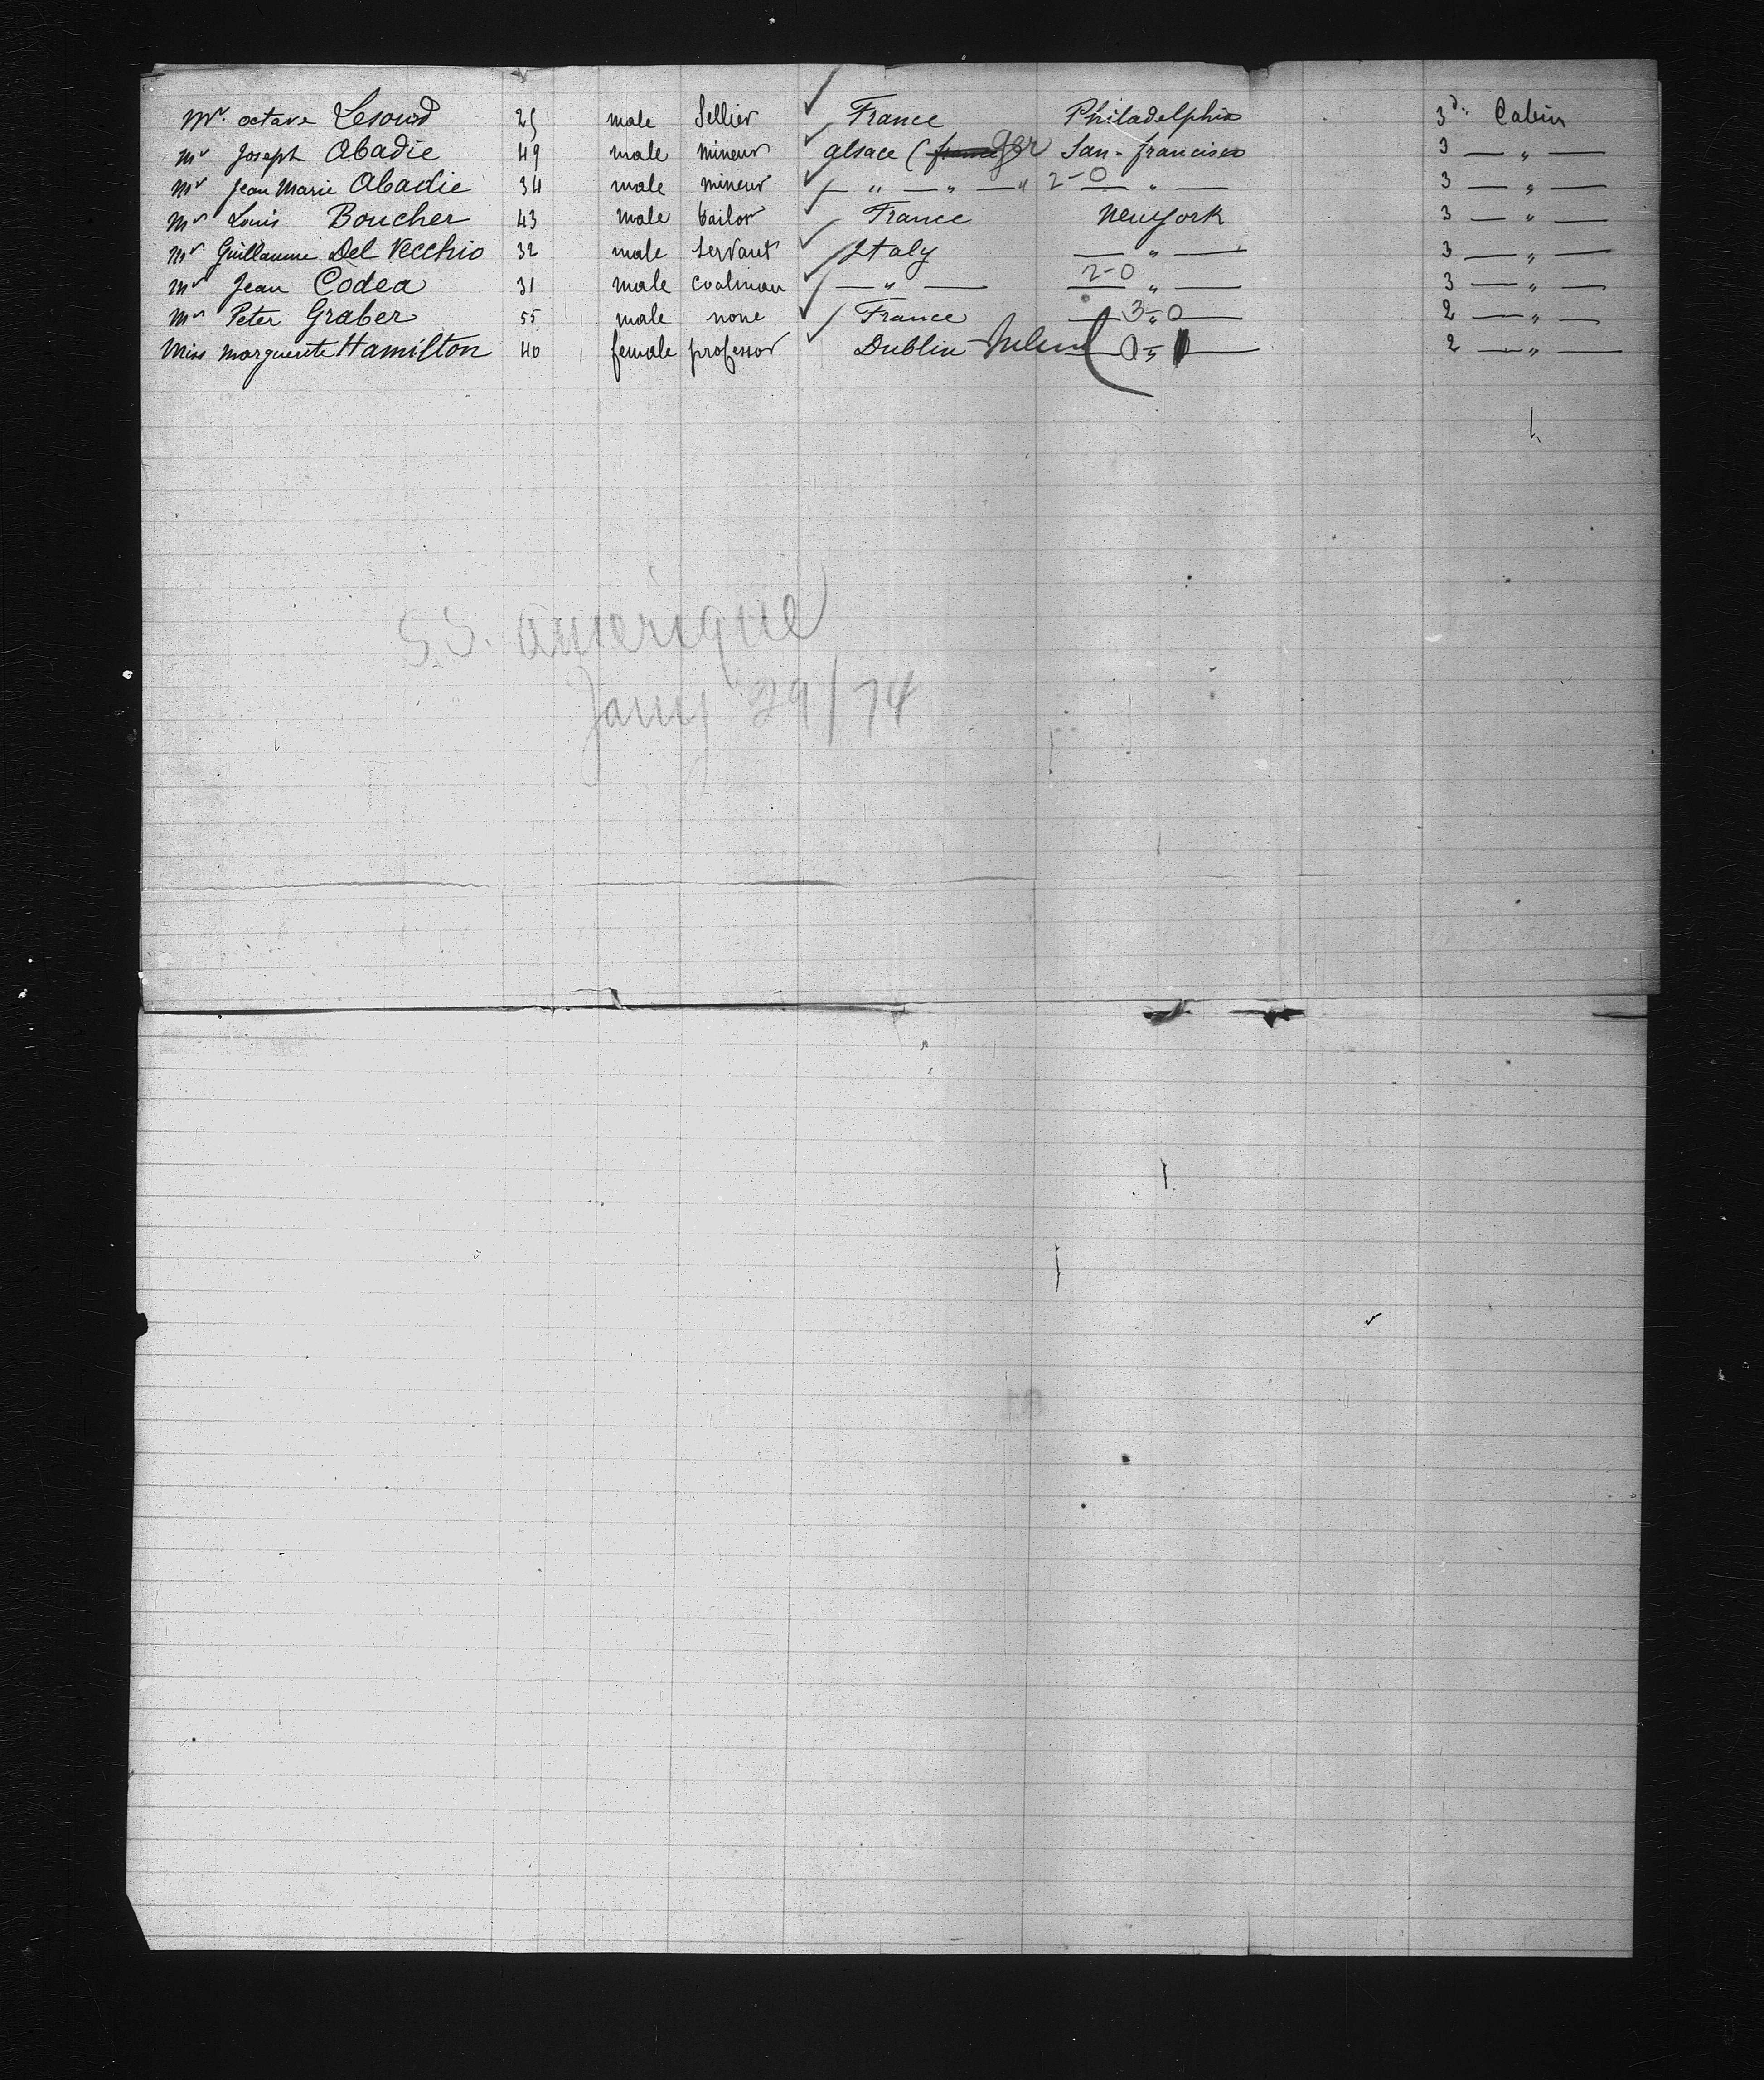 Mr. octave Lesourd 25 male Sellier ✓ France Philadelphia 3d. Cabin
Mr Joseph Abadie 49 male mineur ✓ alsace (france) Ger San-francisco 3 — " —
Mr Jean Marie Abadie 34 male mineur ✓ — " — " — " 2-0 — " — 3 — " —
Mr Louis Boucher 43 male tailor ✓ France Newyork 3 — " —
Mr Guillaume Del Vecchio 32 male servant ✓ Italy — " — 3 — " —
Mr Jean Codea 31 male coalman ✓ — " — 2-0 — " — 3 — " —
Mr Peter Graber 55 male none ✓ France 3-0 — " — 2 — " —
Miss marguerite Hamilton 40 female professor Dublin Ireland 0-1 — " — 2 — " —
S.S. Amerique
Jany 29/74